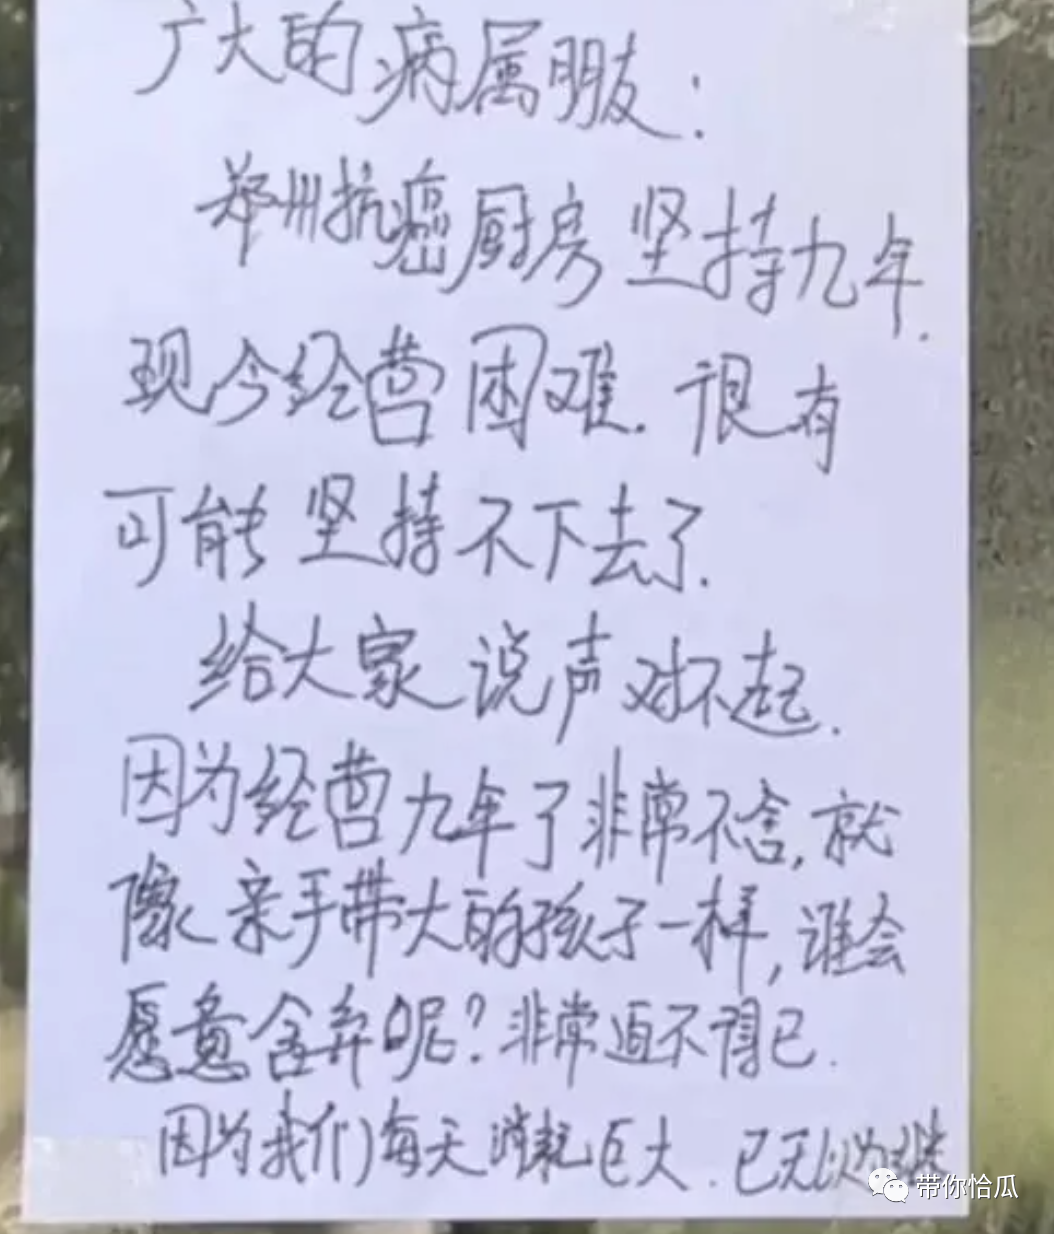 广大的病属朋友：
郑州抗癌厨房坚持九年.
现今经营困难.很有
可能坚持不下去了.
给大家说声对不起.
因为经营九年了非常不舍,就
像亲手带大的孩子一样,谁会
愿意舍弃呢?非常迫不得已.
因为我们每天消耗巨大.已无以为继
带你恰瓜